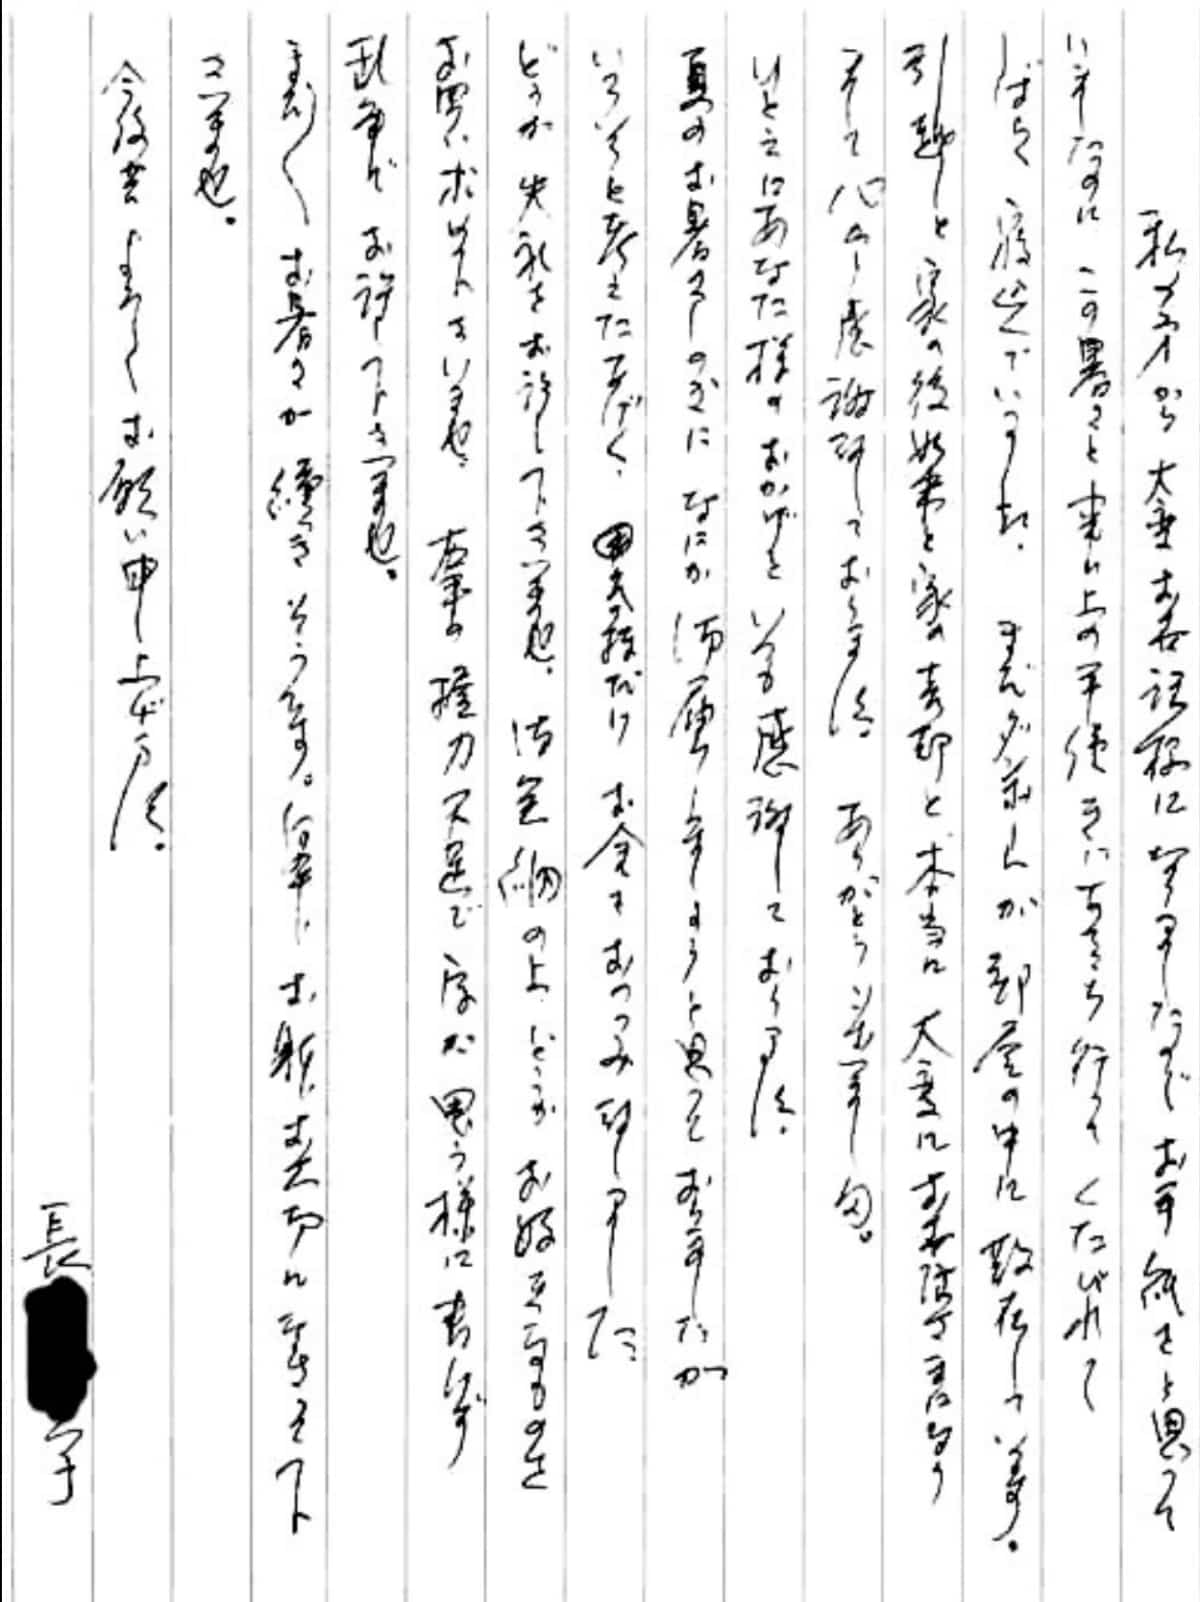 私の方から大変お世話様になりましたので お手紙をと思って
いましたのに この暑さと 上の 手続きに あちこち行って くたびれて
しばらく 寝込んでいました。 まだダンボールが部屋の中に散在しています。
引越しと 家の後始末と家の売却と 本当に 大変に お世話になり
まして 心から感謝致しております。 ありがとうございます。
ひとえにあなた様の おかげと いつも感謝しております。
夏のお暑さしのぎに なにか お届けしましょうと思って おりましたが
いろいろと考えたあげく、 お金を おつつみ致しました
どうか 失礼を お許し下さいませ。 御笑納の上 どうか お好きなものを
お買い求め下さいませ。 右手の 握力不足で 字が 思う様に書けず
乱筆で お許し下さいませ。
まだまだ お暑さが 続きそうです。 何卒 お身体 お大切になさって下
さいませ。
今後共 よろしく お願い申し上げます。
長 子